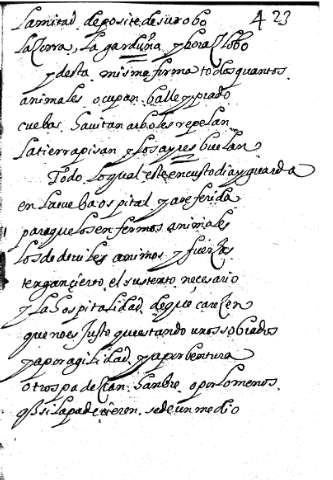 423
la mitad deposite de su robo
la Zorra, La garduña, y boraz lobo
y desta misma forma todos quantos
animales ocupan balle y prado
cuebas avitan arboles repelan
la tierra pisan y los ayres buelan
Todo lo qual este en custodia y guarda
en la cueba ospital ya referida
para que los enfermos animales
los de deviles animos y fuerzas
tengan çierto el sustento neçesario
y la hospitalidad de que careçen
que no es Justo que estando unos sobrados
ya por agilidad, ya por bentura
otros padezcan hambre o por lo menos
q si la padeçieren se de un medio